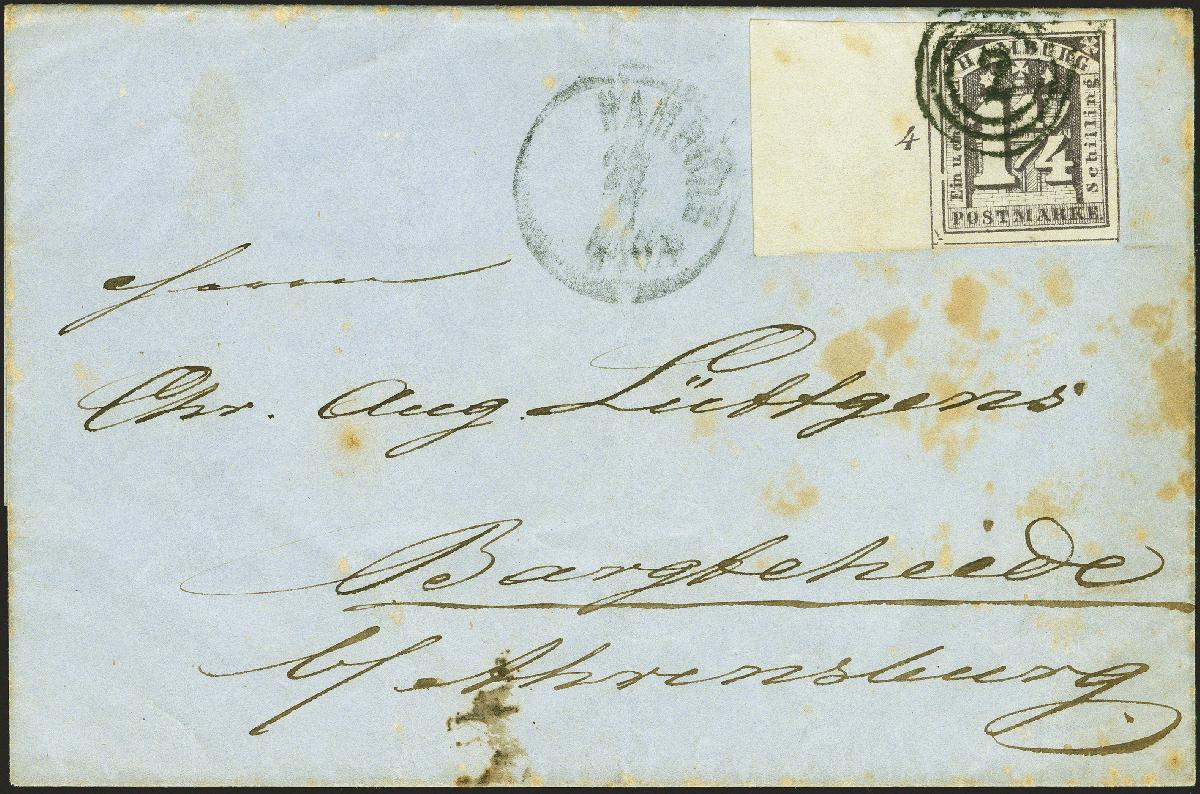 HAMBURG
4
HAMBURG
2
Schilling
1 1/4
POSTMARKE
Herrn
Chr. Aug. Lüttgens
Bargteheide
b/ Ahrensburg